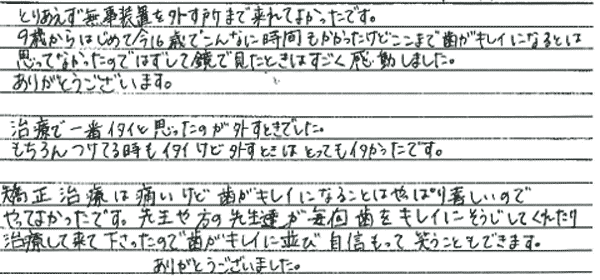 とりあえず無事装置を外す所まで来れてよかったです。
9歳からはじめて今16歳でこんなに時間もかかったけどここまで歯がキレイになるとは
思ってなかったのではずして鏡で見たときはすごく感動しました。
ありがとうございます。
治療で一番イタイと思ったのが外すときでした。
もちろんつけてる時もイタイけど外すときはとってもイタかったです。
矯正治療は痛いけど歯がキレイになることはやっぱり喜しいので
やってよかったです。先生や方の先生達が毎回歯をキレイにそうじしてくれたり
治療して来て下さったので歯がキレイに並び自信もって笑うこともできます。
ありがとうございました。